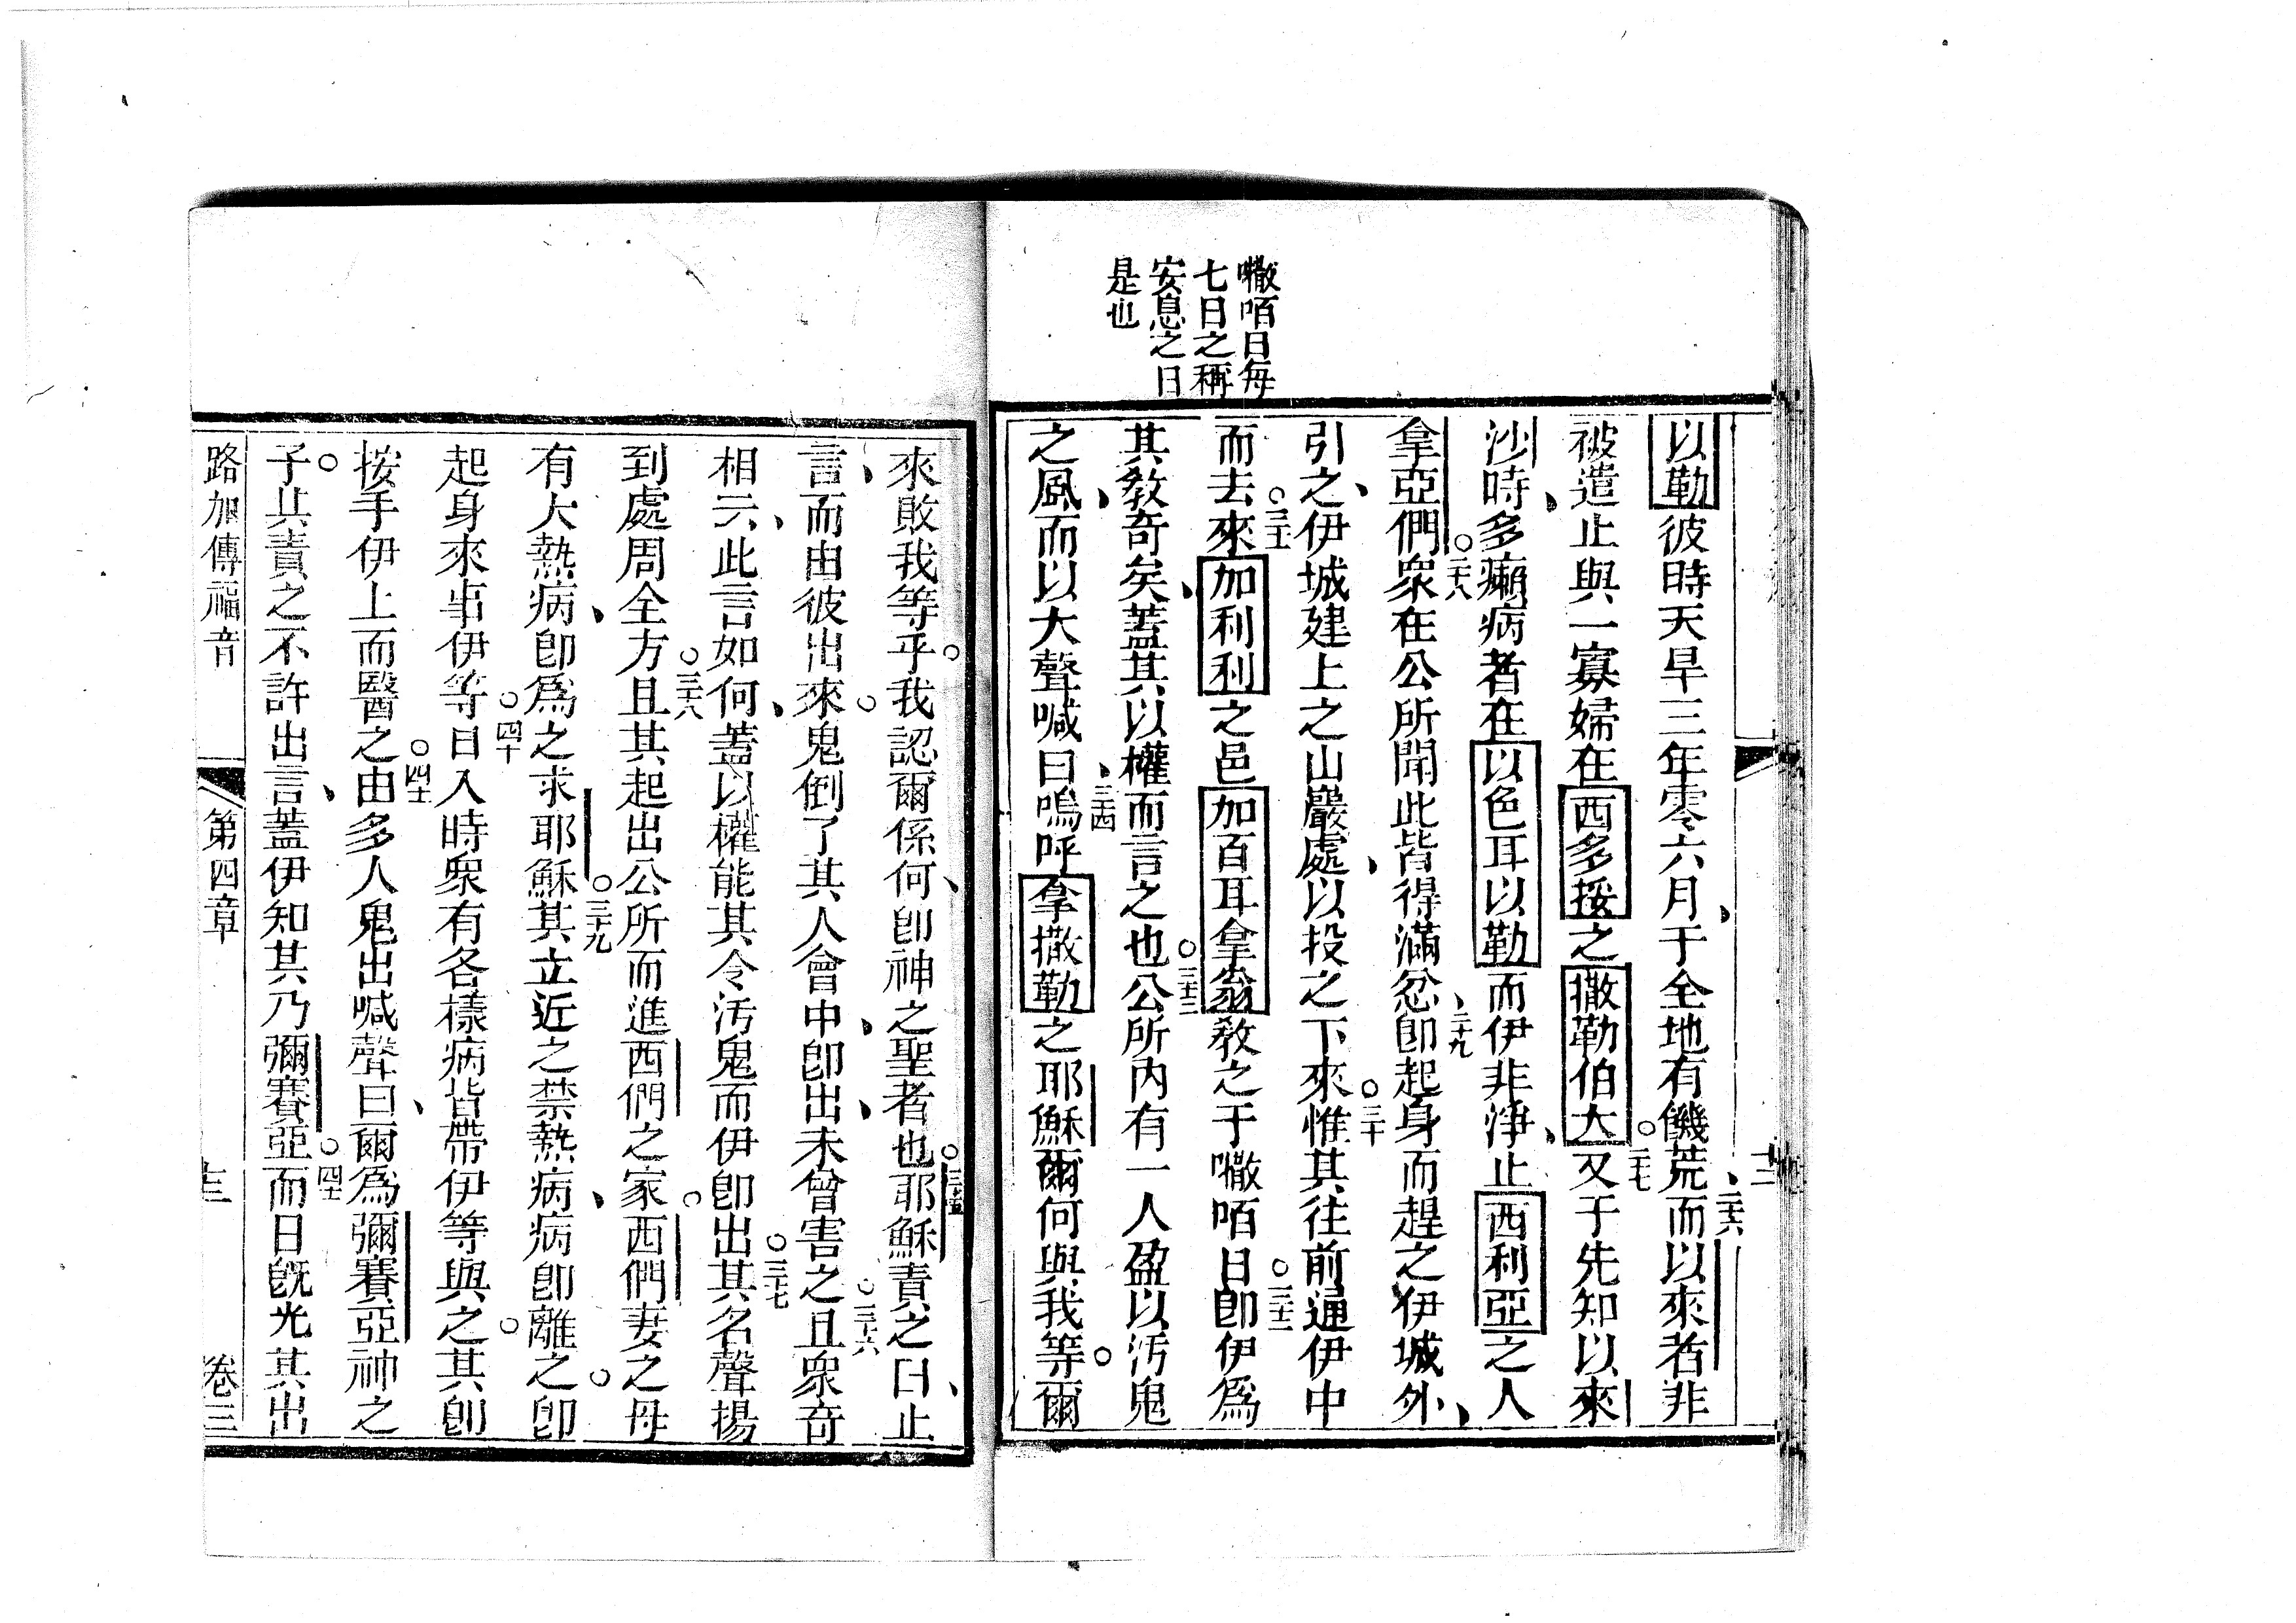 㘔咟日每
七日之稱
安息之日
是也
以勒彼時天旱三年零六月、于全地有饑荒、二十六而以來者非
被遣止與一寡婦在西多挼之撒勒伯大。二十七又于先知以來
沙時、多癩病者在以色耳以勒而伊非淨、止西利亞之人
拿亞們。二十八衆在公所聞此皆得滿忿、二十九卽起身而趕之伊城外、
引之、伊城建上之山巖處、以投之下來。三十惟其往前通伊中
而去。三十一來加利利之邑加百耳拿翁敎之于㘔咟日。三十二卽伊爲
其敎奇矣、蓋其以權而言之也。三十三公所內有一人盈以污鬼
之風、而以大聲喊曰、三十四嗚呼拿撒勒之耶穌爾何與我等。爾
來敗我等乎。我認爾係何、卽神之聖者也。三十五耶穌責之曰、止
言、而由彼出來。鬼倒了其人會中、卽出、未曾害之。三十六且衆奇
相云、此言如何、蓋以權能其令污鬼而伊卽出。三十七其名聲揚
到處周全方。三十八且其起出公所而進西們之家。西們妻之母
有大熱病、卽爲之求耶穌。三十九其立近之禁熱病、病卽離之。卽
起身來事伊等。四十日入時衆有各樣病皆帶伊等與之。其卽
按手伊上而醫之。四十一由多人鬼出喊聲曰、爾爲彌賽亞神之
子。其責之不許出言、蓋伊知其乃彌賽亞。四十二而日旣光其出
路加傳福音 第四章 十三 卷三